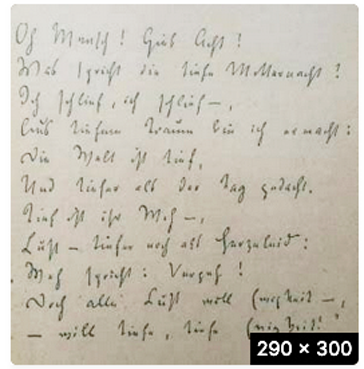 Oh Mensch! Gieb Acht!
Was spricht die tiefe Mitternacht?
Ich schlief, ich schlief —,
aus tiefem Traum bin ich erwacht:
Die Welt ist tief,
Und tiefer als der Tag gedacht.
Tief ist ihr Weh —,
Lust — tiefer noch als Herzeleid:
Weh spricht: Vergeh!
Doch alle Lust will Ewigkeit —,
— will tiefe, tiefe Ewigkeit!
290 × 300